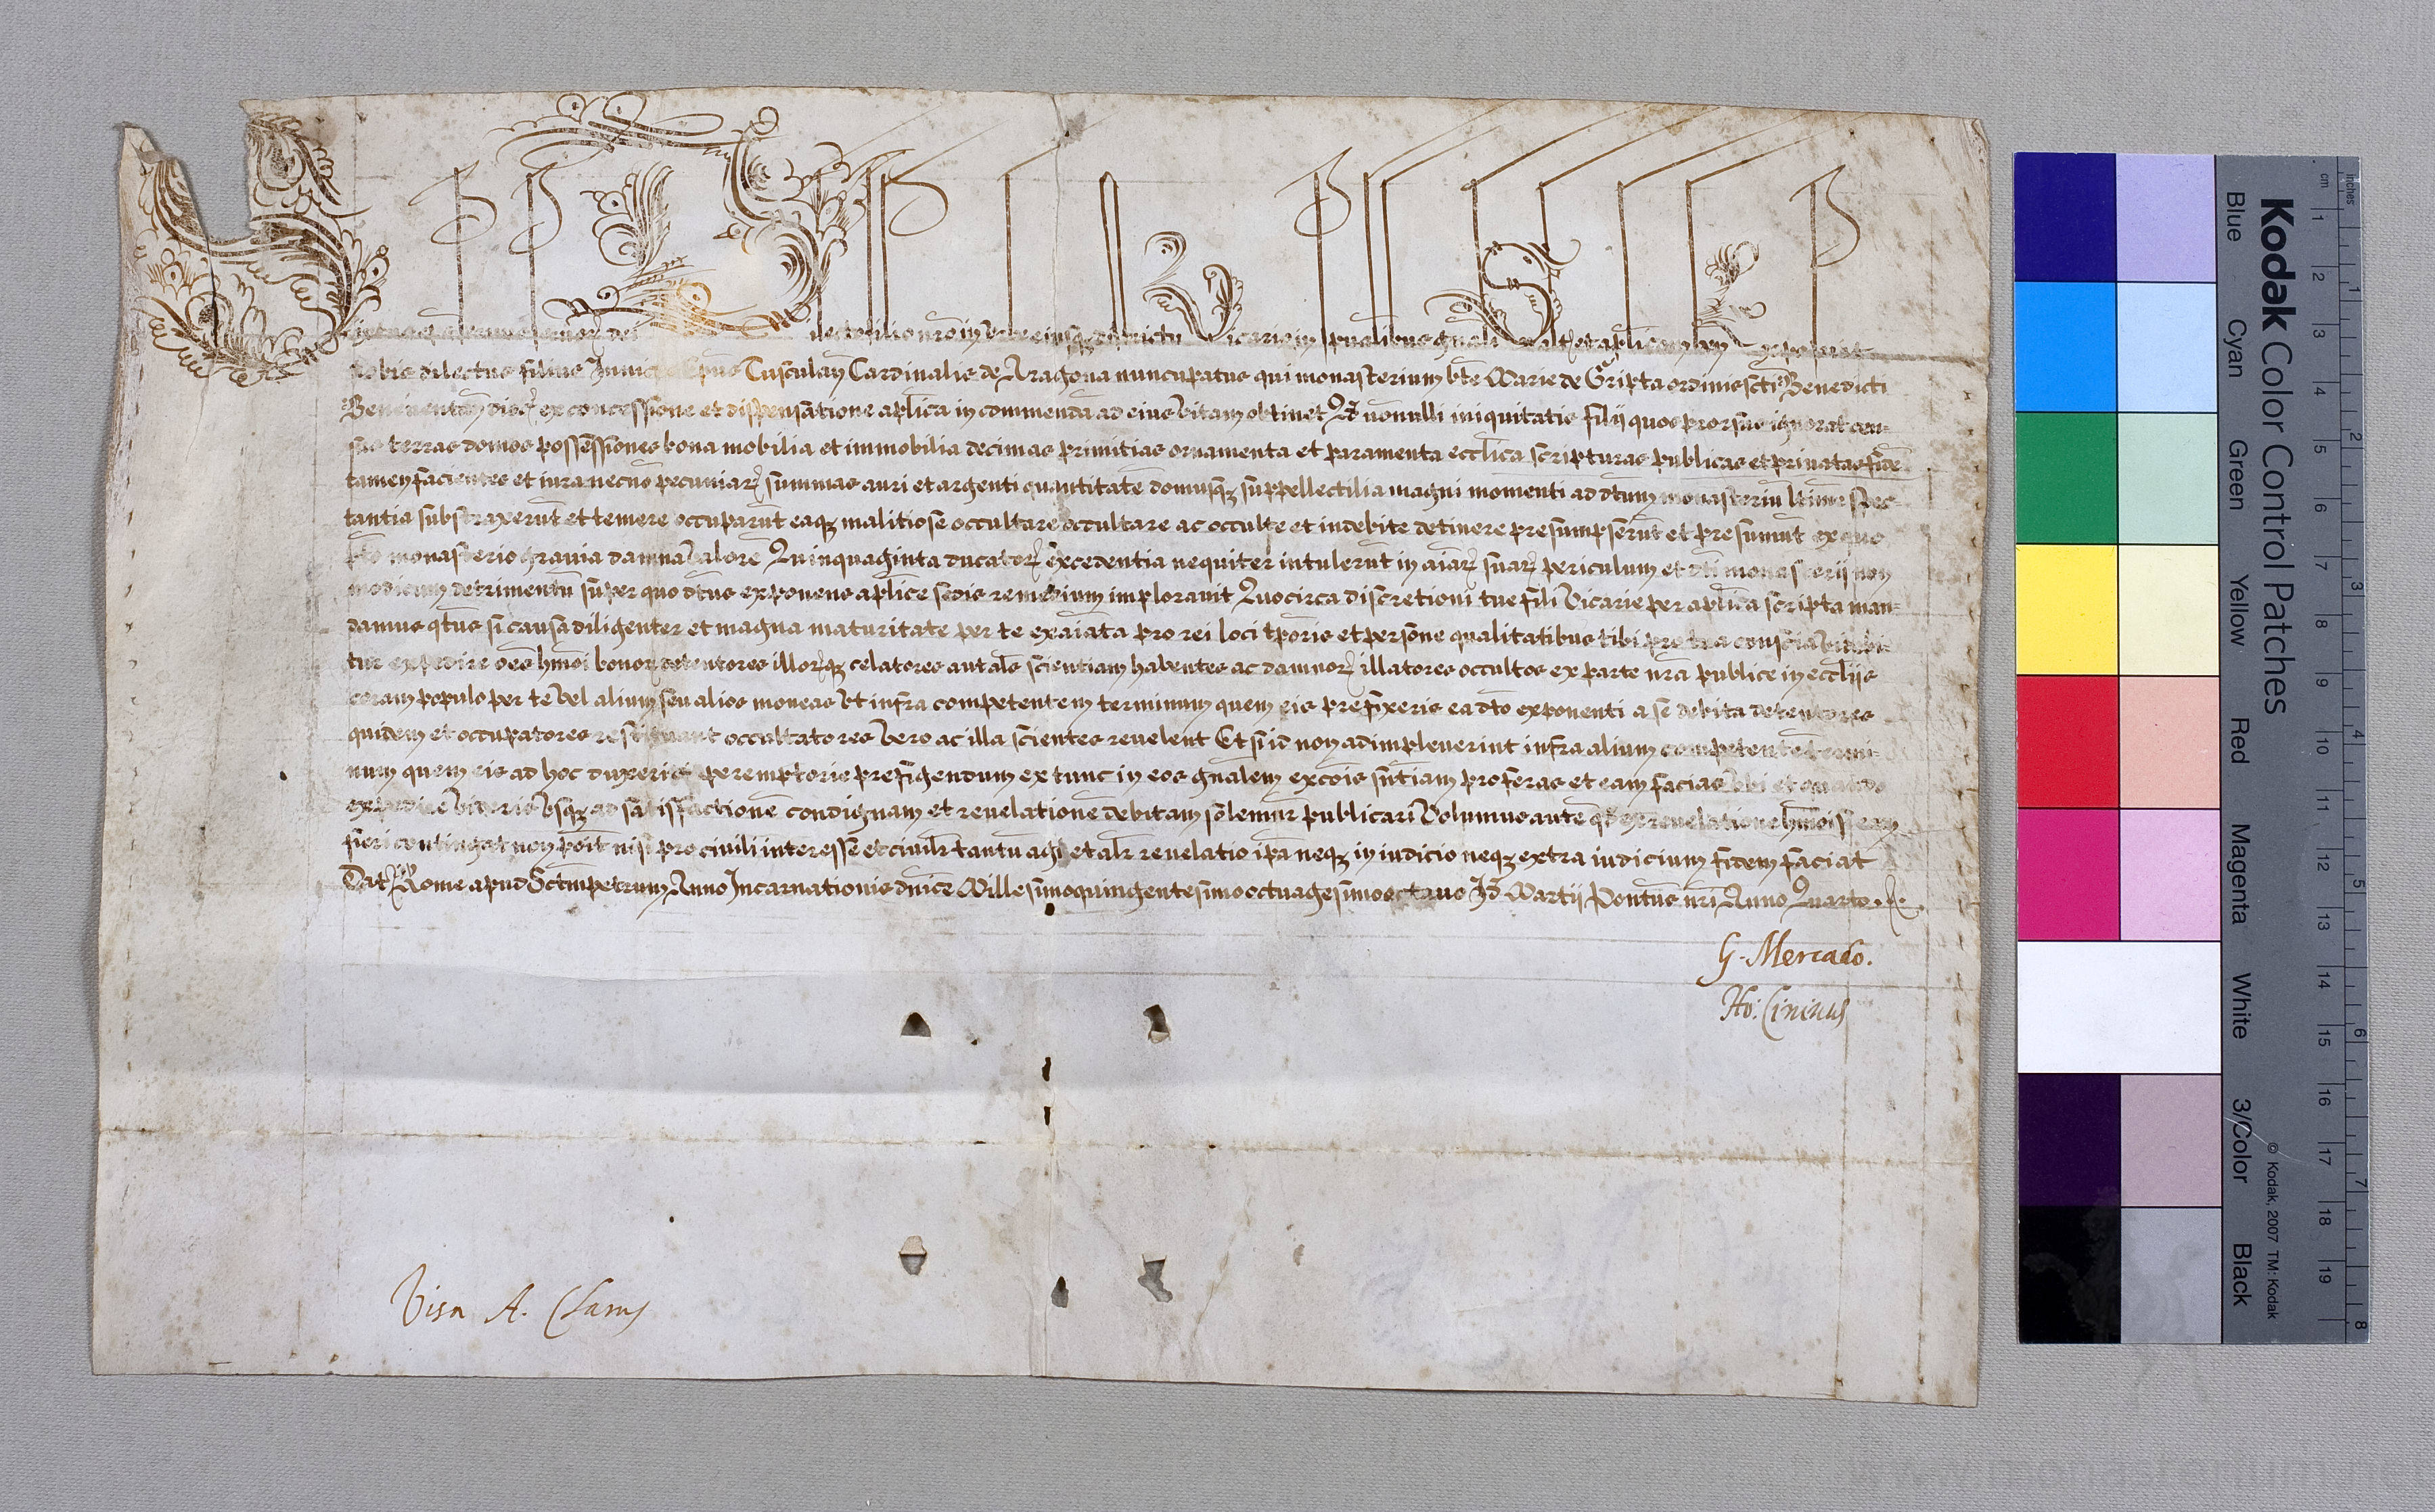 dilecto filio nro in Urbe eiusq districtu Vicario in spualibus gnali Salt et aplicam ben Exposuit
Nobis dilectus filius Innicus Epus Tusculan Cardinalis de Aragona nuncupatus qui monasterium bte Marie de Gripta ordinis scti Benedicti
Beneventan dioc ex concessione et dispensatione aplica in commendam ad eius vitam obtinet Qd nonnulli iniquitatis filij quos prorsus ignorat cen-
sus terras domos possessiones bona mobilia et immobilia decimas primitias ornamenta et paramenta ecclica scripturas publicas et privatas fide
tamen facientes et iura necno pecuniar summas auri et argenti quantitate domusq suppellectilia magni momenti ad dtum monasteriu ltime spec-
tantia substraxerut et temere occuparut eaq malitiose occultare occultare ac occulte et indebite detinere presumpserut et presumut ex quo
dto monasterio gravia damna valore Quinquaginta ducator excedentia nequiter intulerut in aiar suar periculum et dti monasterij non
modicum detrimentu super quo dtus exponens aplice sedis remedium imploravit Quocirca discretioni tue fili Vicarie per aplica scripta man-
damus qtus si causa diligenter et magna maturitate per te exaiata pro rei loci tporis et persone qualitatibus tibi pro tua conscia videbi-
tur expedire oes hmoi bonor detentores illorq celatores aut als scientiam habentes ac damnor illatores occultos ex parte nra publice in ecclijs
coram populo per te vel alium seu alios moneas Ut infra competentem terminum quem eis prefixeris ea dto exponenti a se debita detentores
quidem et occupatores restituant occultatores vero ac illa scientes revelent Et si id non adimpleverint infra alium competente termi-
num quem eis ad hoc duxeris peremptorie prefigendum ex tunc in eos gnalem excois sntiam proferas et eam facias ubi et quando
expedire videris usq ad satisfactione condignam et revelatione debitam solemnr publicari Volumus aute qd ex revelatione hmoi si eam
fieri contingat non poit nisi pro civili interesse et civilr tantu agi et alr revelatio ipa neq in iudicio neq extra iudicium fidem faciat
Dat Rome apud Sctmpetrum Anno Incarnationis dnice Millesimoquingentesimooctuagesimooctavo Id Martij Pontus nri Anno Quarto
G. Mercado.
Ho:
Visa A.
Kodak Color Control Patches
Blue Cyan Green Yellow Red Magenta White 3/Color Black
© Kodak, 2007 TM: Kodak
inches 1 2 3 4 5 6 7 8
cm 1 2 3 4 5 6 7 8 9 10 11 12 13 14 15 16 17 18 19